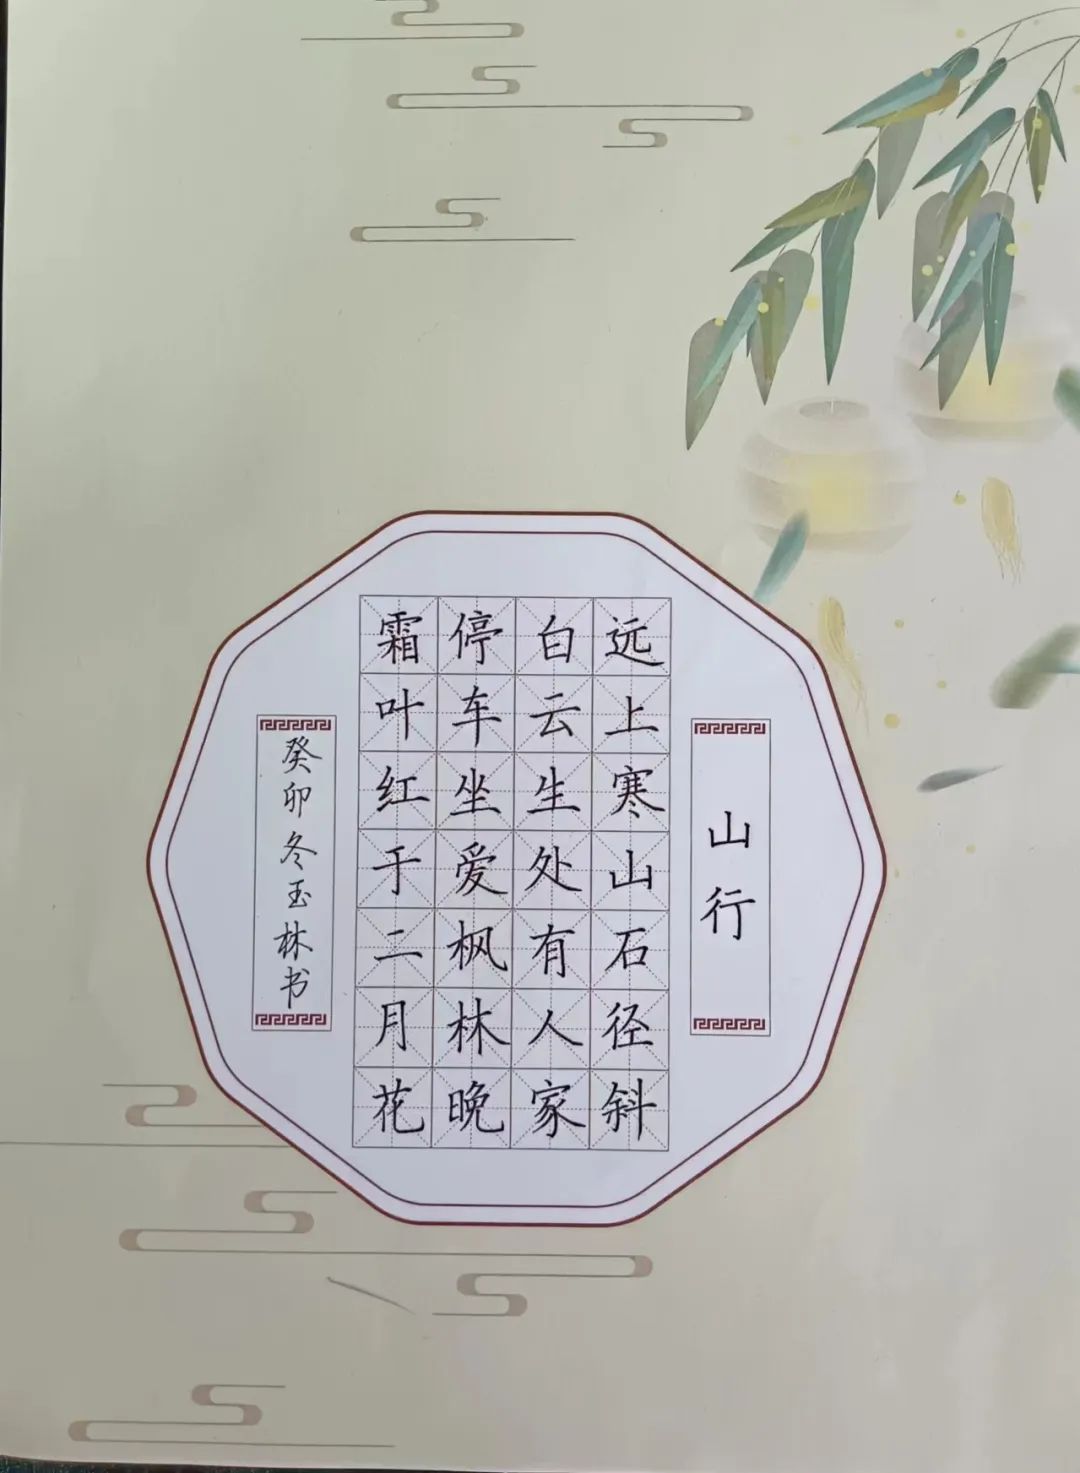 山行
远上寒山石径斜
白云生处有人家
停车坐爱枫林晚
霜叶红于二月花
癸卯冬玉林书